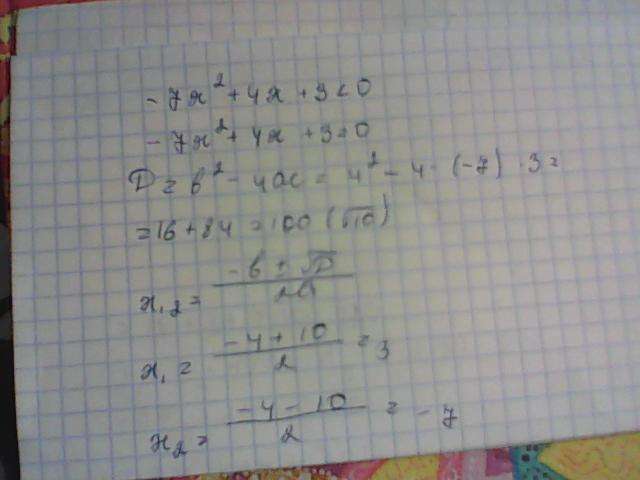 -7x²+4x+3<0
-7x²+4x+3=0
D=b²-4ac=4²-4·(-7)·3=
=16+84=100(√10)
x₁,₂=(-b±√D)/2a
x₁=(-4+10)/2=3
x₂=(-4-10)/2=-7